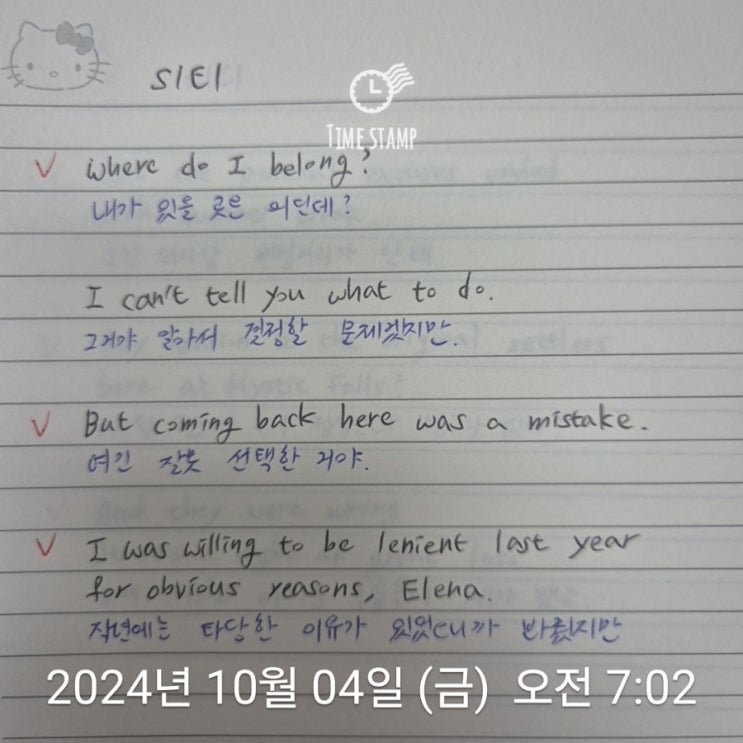 S1E1
TIME STAMP
Where do I belong?
내가 있을 곳은 어딘데?
I can't tell you what to do.
그거야 알아서 결정할 문제겠지만.
But coming back here was a mistake.
여긴 잘못 선택한 거야.
I was willing to be lenient last year
for obvious reasons, Elena.
작년에는 타당한 이유가 있었으니까 봐줬지만
2024년 10월 04일 (금) 오전 7:02